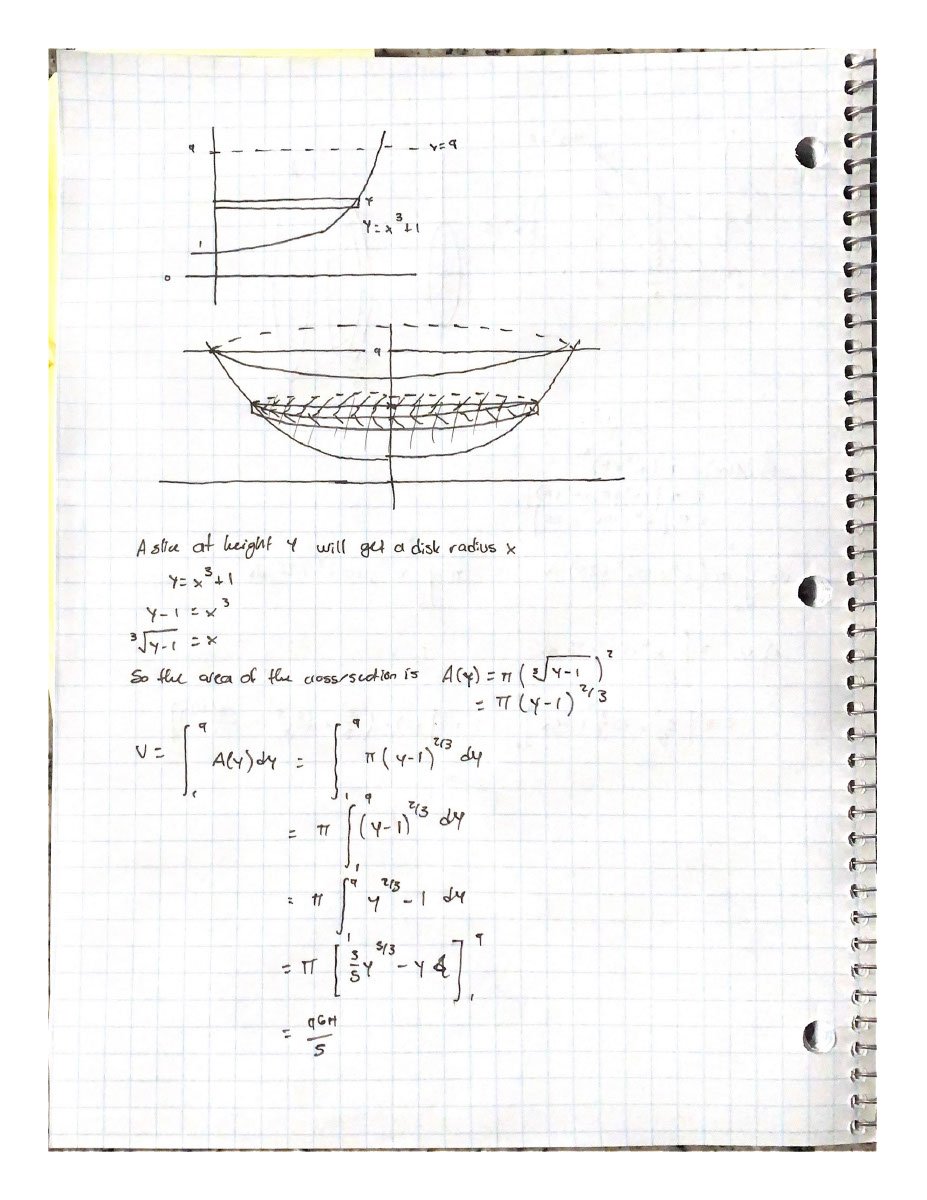 9
y=9
y
y=x³+1
1
0
9
A slice at height y will get a disk radius x
y=x³+1
y-1 = x³
³√(y-1) = x
So the area of the cross/section is A(y) = π(³√(y-1))²
= π(y-1)^(2/3)
V = ∫₁⁹ A(y)dy = ∫₁⁹ π(y-1)^(2/3) dy
= π ∫₁⁹ (y-1)^(2/3) dy
= π ∫₁⁹ y^(2/3) - 1 dy
= π [3/5 y^(5/3) - y]₁⁹
= 96π/5